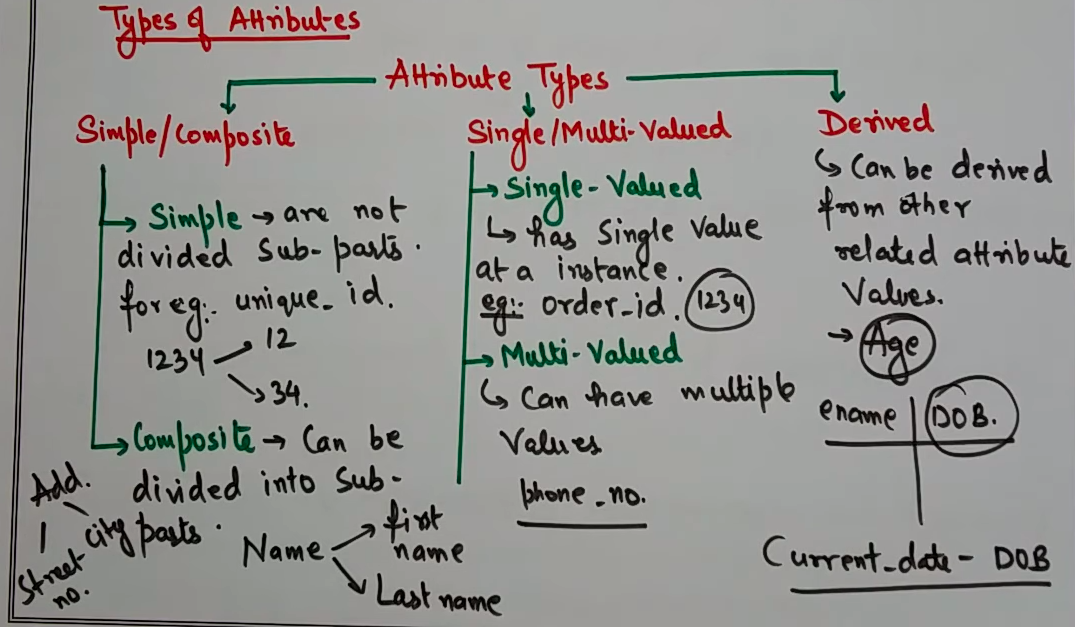 Types of Attributes
Attribute Types
Simple/Composite
Simple → are not
divided Sub-parts.
for eg:- unique_id.
1234 → 12
→ 34.
Composite → Can be
divided into Sub-
parts.
Add.
city
Street
no.
Name → first
name
→ Last name
Single/Multi-Valued
→ Single-Valued
↳ has Single Value
at a instance.
eg:- order_id. 1234
→ Multi-Valued
↳ Can have multiple
Values
phone_no.
Derived
↳ Can be derived
from other
related attribute
Values.
→ Age
ename | DOB.
Current_date - DOB